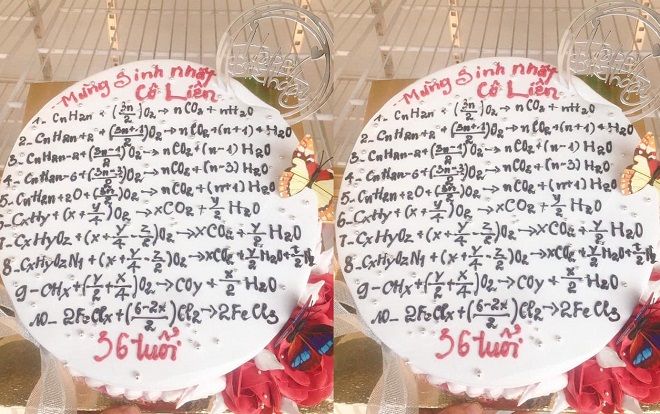 Mừng sinh nhật
Cô Liên
1- CnH2n + (3n/2)O2 → nCO2 + nH2O
2- CnH2n+2 + (3n+1/2)O2 → nCO2 + (n+1) H2O
3- CnH2n-2 + (3n-1/2)O2 → nCO2 + (n-1) H2O
4- CnH2n-6 + (3n-3/2)O2 → nCO2 + (n-3) H2O
5- CnH2n+2O + (3n/2)O2 → nCO2 + (n+1) H2O
6- CxHy + (x + y/4)O2 → xCO2 + y/2 H2O
7- CxHyOz + (x + y/4 - z/2)O2 → xCO2 + y/2 H2O
8- CxHyOzNt + (x + y/4 - z/2)O2 → xCO2 + y/2 H2O + t/2 N2
9- CHx + (y/2 + x/4)O2 → COy + x/2 H2O
10- 2FeClx + (6-2x/2)Cl2 → 2FeCl3
36 tuổi
Mừng sinh nhật
Cô Liên
1- CnH2n + (3n/2)O2 → nCO2 + nH2O
2- CnH2n+2 + (3n+1/2)O2 → nCO2 + (n+1) H2O
3- CnH2n-2 + (3n-1/2)O2 → nCO2 + (n-1) H2O
4- CnH2n-6 + (3n-3/2)O2 → nCO2 + (n-3) H2O
5- CnH2n+2O + (3n/2)O2 → nCO2 + (n+1) H2O
6- CxHy + (x + y/4)O2 → xCO2 + y/2 H2O
7- CxHyOz + (x + y/4 - z/2)O2 → xCO2 + y/2 H2O
8- CxHyOzNt + (x + y/4 - z/2)O2 → xCO2 + y/2 H2O + t/2 N2
9- CHx + (y/2 + x/4)O2 → COy + x/2 H2O
10- 2FeClx + (6-2x/2)Cl2 → 2FeCl3
36 tuổi